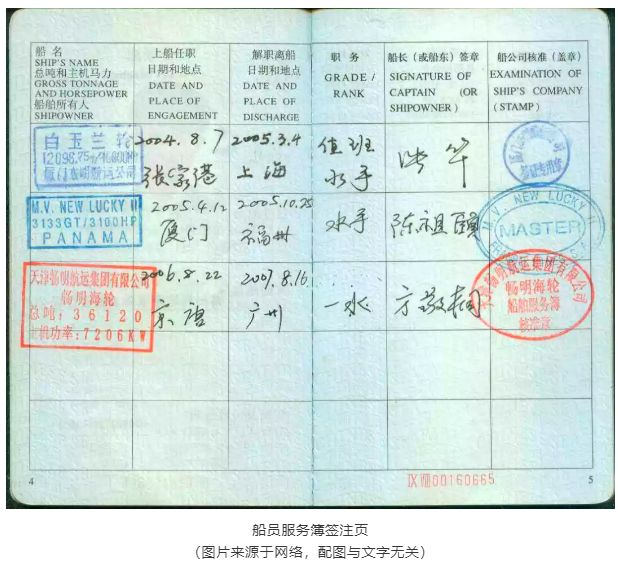 船名
SHIP'S NAME
总吨和主机马力
GROSS TONNAGE
AND HORSEPOWER
船舶所有人
SHIPOWNER
上船任职
日期和地点
DATE AND
PLACE OF
ENGAGEMENT
解职离船
日期和地点
DATE AND
PLACE OF
DISCHARGE
职务
GRADE /
RANK
船长（或船东）签章
SIGNATURE OF
CAPTAIN (OR
SHIPOWNER)
船公司核准（盖章）
EXAMINATION OF
SHIP'S COMPANY
(STAMP)
白玉兰轮
2004.8.7
张家港
2005.3.4
上海
值班
水手
M.V. NEW LUCKY II
3133GT/3100HP
PANAMA
2005.4.12
厦门
2005.10.25
福州
水手
陈祖颐
M.V. NEW LUCKY
MASTER
天津畅明航运集团有限公司
畅明海轮
总吨:36120
主机功率:7206KW
2006.8.22
京唐
2007.8.16
广州
一水
天津畅明航运集团有限公司
畅明海轮
船舶服务簿
核准章
4
00160665
5
船员服务簿签注页
（图片来源于网络，配图与文字无关）